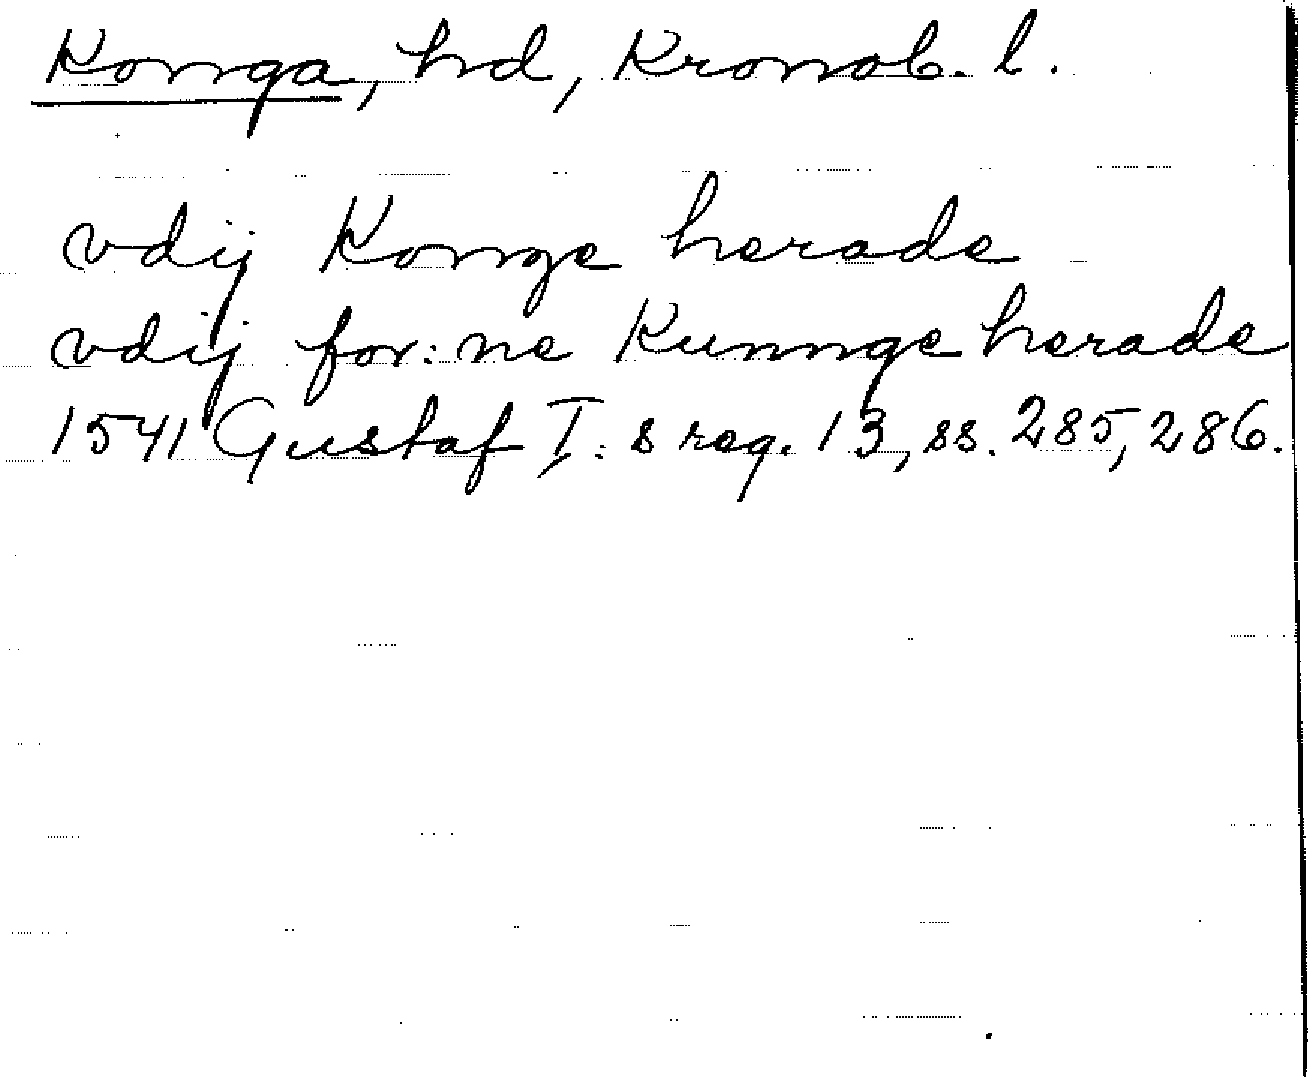 Konga, hd, Kronob. l.
vdij Konge herade
vdij for:ne Kunnge herade
1541 Gustaf I:s reg. 13, ss. 285, 286.